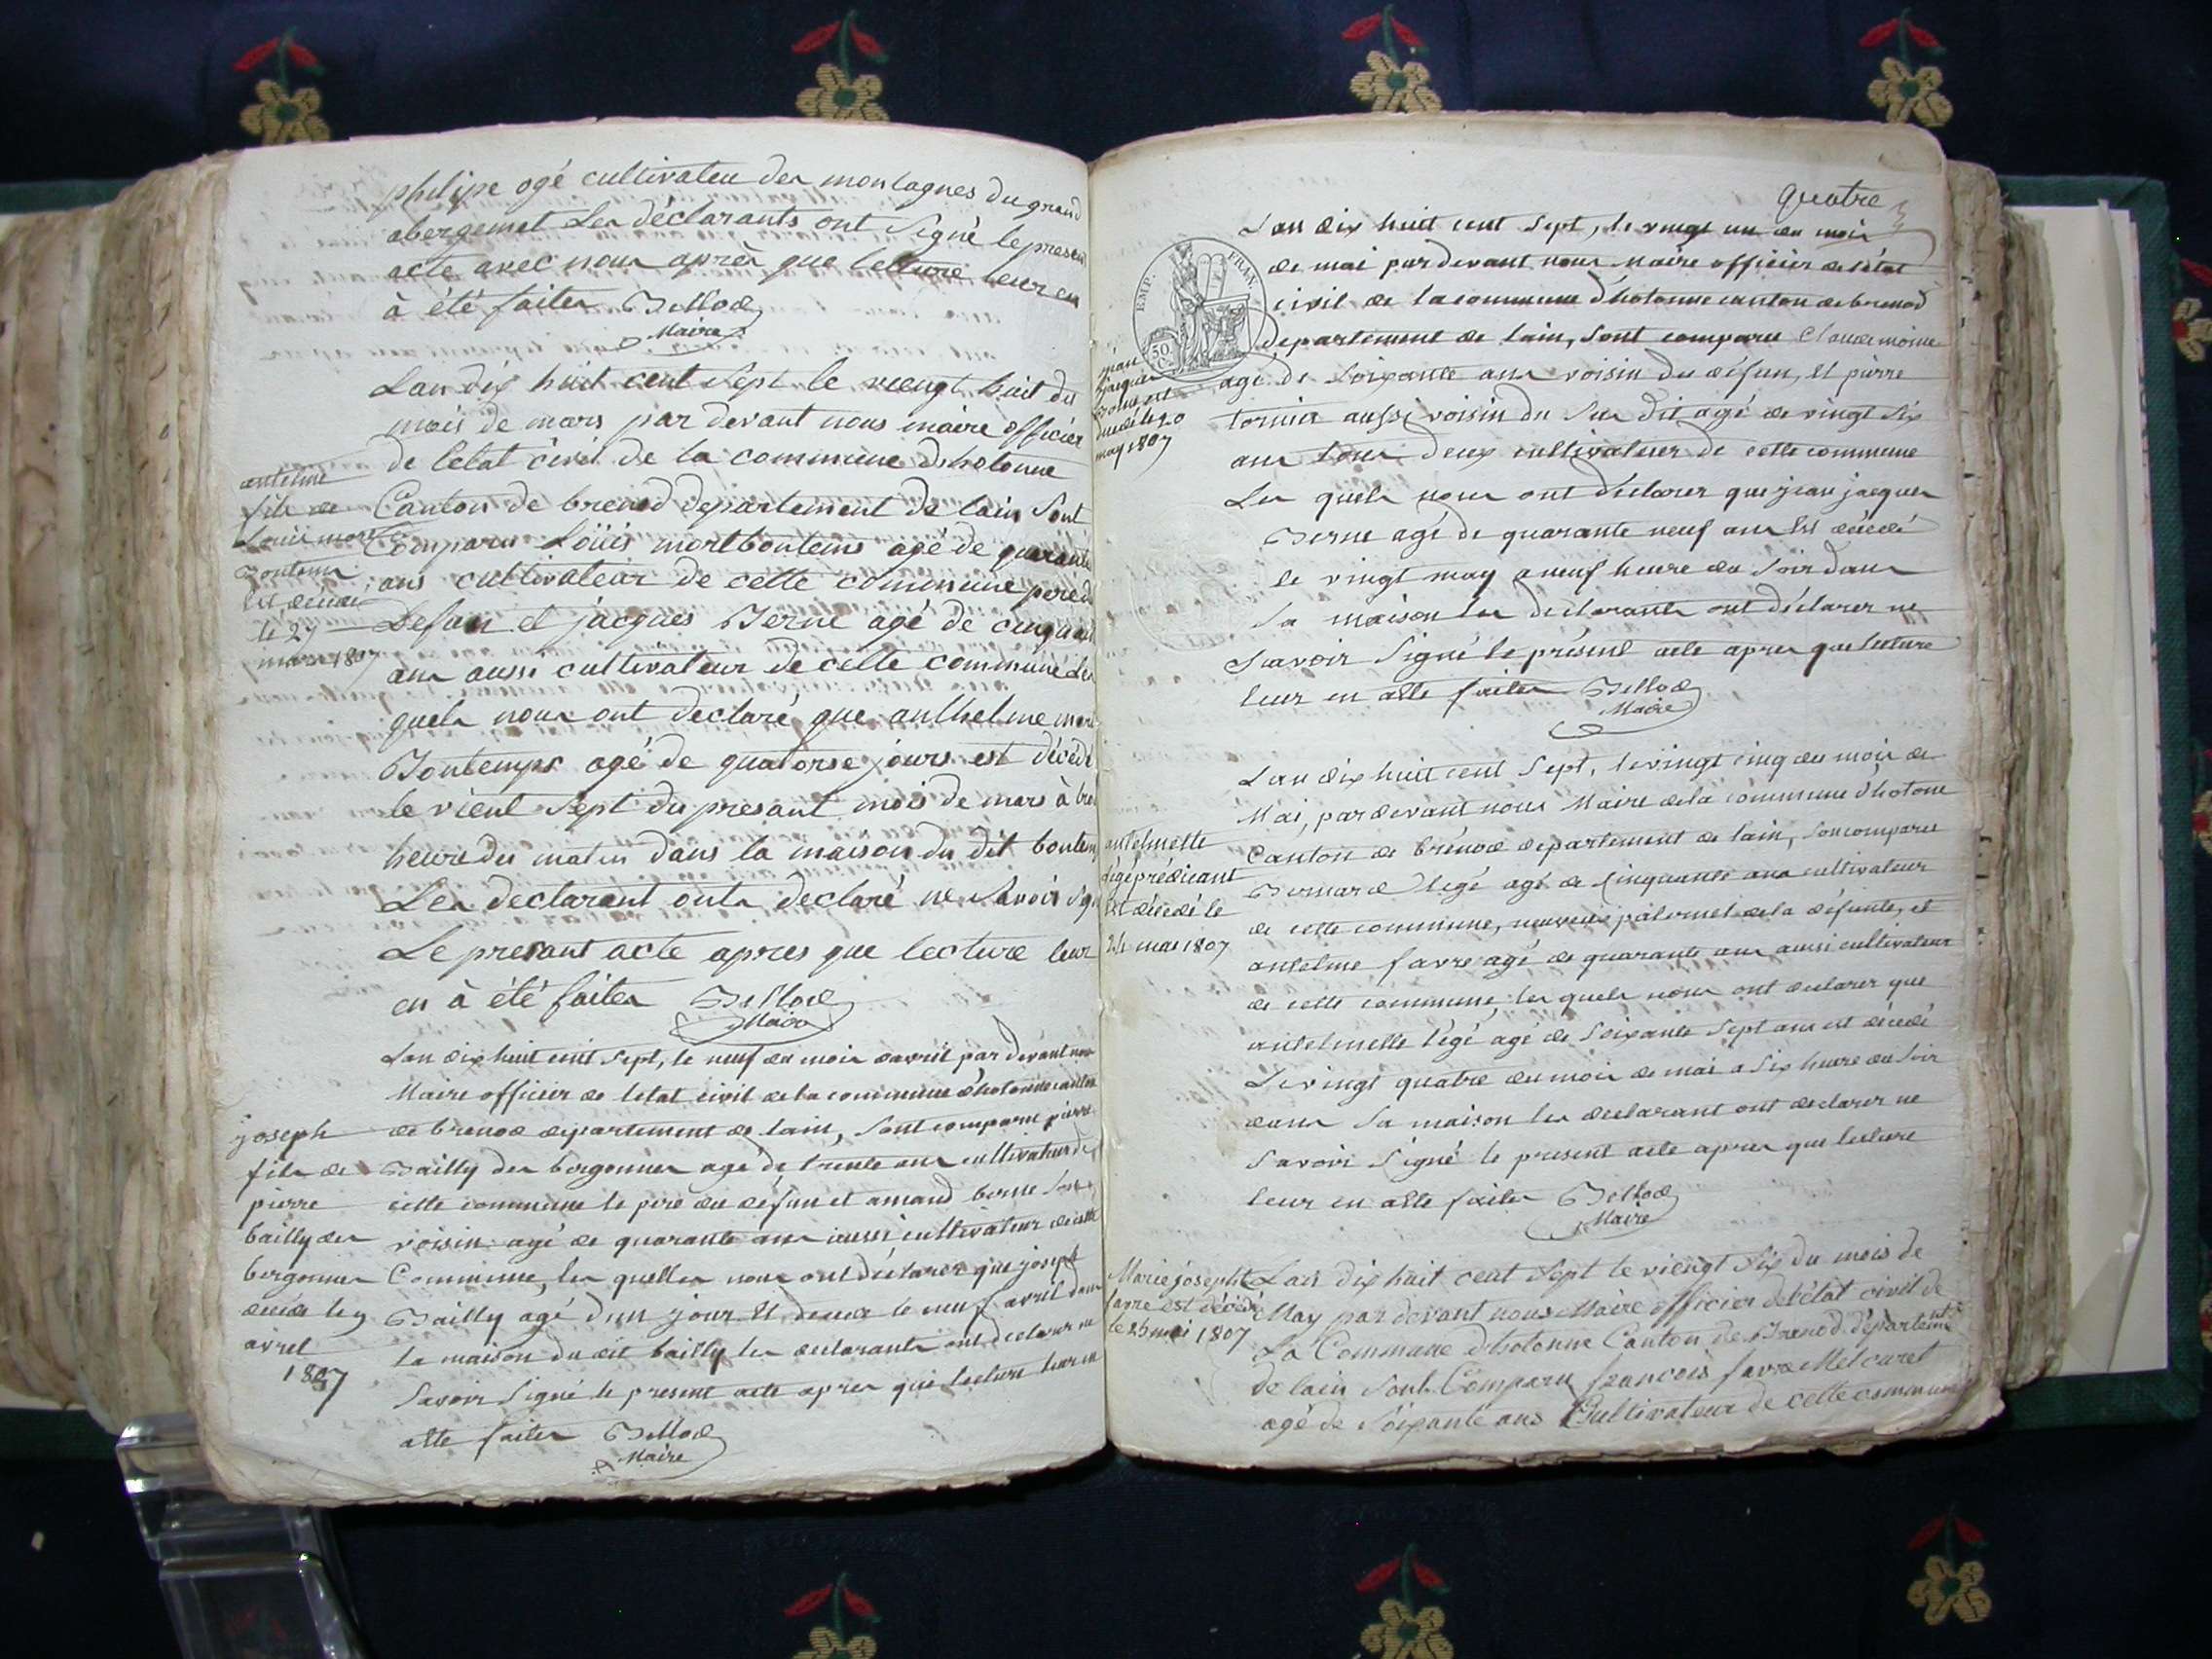 philipe ogé cultivateur des montagnes du grand
abergemet Les déclarants ont Signé le presen
acte avec nous après que lecture leur en
à été faites Bellod
Maire
Lan dix huit cent Sept le viengt huit du
mois de mars par devant nous maire officier
de letat civil de la commune dhotonne
Canton de brenod departement de lain Sont
Comparu Loüis mortbontems agé de quarante
ans cultivateur de cette commune pere du
Defun et jacques Berne agé de cinquant
ans aussi cultivateur de cette commune Les
quels nous ont declaré que anthelme mor
Bontemps agé de quatorse jours est décédé
le vient Sept du presant mois de mars à
heure du matin dans la maison du dit bontem
Les declarant onts declaré ne Savoir Sig
Le presant acte apres que lecture leur
en à été faites Bellod
Maire
antelme
fils de
Louis mort
Bontems
est décédé
le 27
mars 1807
Lan dix huit cent Sept, le neuf du mois davril par devant nous
Maire officier de letat civil de la commune dhotonne canton
de brenod departement de lain, Sont comparu pierre
Bailly des bergonnes agé de trente ans cultivateur de
cette commune le pere du défun et amand berne Son
voisin agé de quarante ans aussi cultivateur de cette
Commune, les quelles nous ont déclarer que joseph
Bailly agé dun jour est décédé le neuf avril dans
la maison du dit bailly les declarants ont declarer ne
Savoir Signé le present acte apres que lecture leur en
atte faites Bellod
Maire
joseph
fils de
pierre
bailly des
bergonnes
décédé le 9
avril
1807
quatre
Lan dix huit cent Sept, le vingt un du mois
de mai par devant nous maire officier de létat
civil de la commune d'hotonne canton de brenod
departement de lain, Sont comparu Claude moine
agé de Soixante ans voisin du défun, et pierre
tornier aussi voisin du Sus dit agé de vingt Six
ans tous deux cultivateur de cette commune
Les quels nous ont déclarer que jean jacques
Berne agé de quarante neuf ans Est décédé
le vingt may a neuf heure du Soir dans
Sa maison les declarants ont déclarer ne
Savoir Signé le présent acte apres que lecture
leur en atte faites Bellod
Maire
EMP. FRAN.
50
C.
jean
jacques
décédé le 20
may 1807
Lan dix huit cent Sept, le vingt cinq du mois de
Mai, par devant nous Maire de la commune d'hotone
Canton de brénod departement de lain, Son comparu
Bernard légé agé de Cinquante ans cultivateur
de cette commune, neuveux paternel de la défunte, et
antelme favre agé de quarante ans aussi cultivateur
de cette commune, les quels nous ont declarer que
antelmette légé agé de Soixante Sept ans est décédé
Le vingt quatre du mois de mai a Six heure du Soir
dans Sa maison les declarant ont declarer ne
Savoir Signé le present acte apres que lecture
leur en atte faites Bellod
Maire
antelmette
légé prédicant
Est décédé le
24 mai 1807
Lan dix huit cent Sept le viengt Six du mois de
May par devant nous Maire officier de létat civil de
La Commune d'hotonne Canton de Brenod départemnt
de lain Sont Comparu françois favre Metcuret
agé de Soixante ans Cultivateur de cette commune
Marie josephte
favre est décédé
le 25 mai 1807